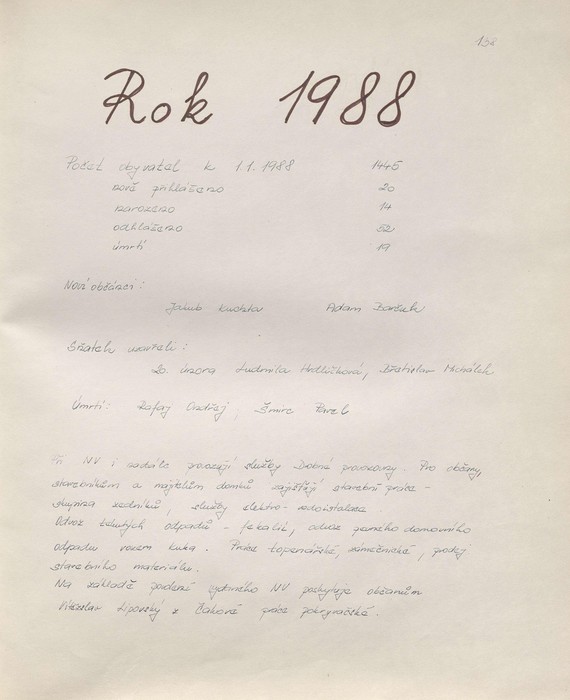 158
Rok 1988
Počet obyvatel k 1.1.1988 1445
nově přihlášeno 20
narozeno 14
odhlášeno 52
úmrtí 19
Noví občánci:
Jakub Adam
Sňatek uzavřeli:
20. února Ludmila Hrdličková, Břetislav Michálek
Úmrtí: Rafaj Ondřej, Šmirc Pavel
Při NV i nadále provozují služby Drobné provozovny. Pro občany,
stavebníkům a majitelům domků zajišťují stavební práce -
skupina zedníků, služby elektro - vodoinstalace.
Odvoz tekutých odpadů - fekálií, odvoz pevného domovního
odpadu vozem kuka. Práce topenářské, zámečnické, prodej
stavebního materiálu.
Na základě povolení zdejšího NV poskytuje občanům
Vítězslav Lipovský z Čakové práce pokryvačské.